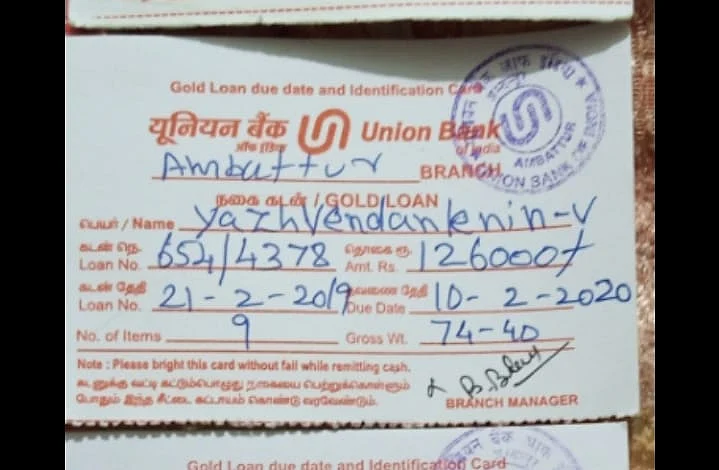 Gold Loan due date and Identification Card
यूनियन बैंक Union Bank
ऑफ इंडिया of India
Ambattur BRANCH
நகை கடன் / GOLD LOAN
பெயர் / Name Yazhvendanlenin-V
கடன் நெ. தொகை ரூ.
Loan No. 654/4378 Amt. Rs. 126000/
கடன் தேதி தவணை தேதி
Loan No. 21-2-2019 Due Date 10-2-2020
No. of Items 9 Gross Wt. 74-40
Note : Please bright this card without fail while remitting cash.
கடனுக்கு வட்டி கட்டும்பொழுது நகையை பெற்றுக்கொள்ளும்
போதும் இந்த சீட்டை கட்டாயம் கொண்டு வரவேண்டும்.
BRANCH MANAGER
AMBATTUR
UNION BANK OF INDIA
Gold Loan due date and Identification Card